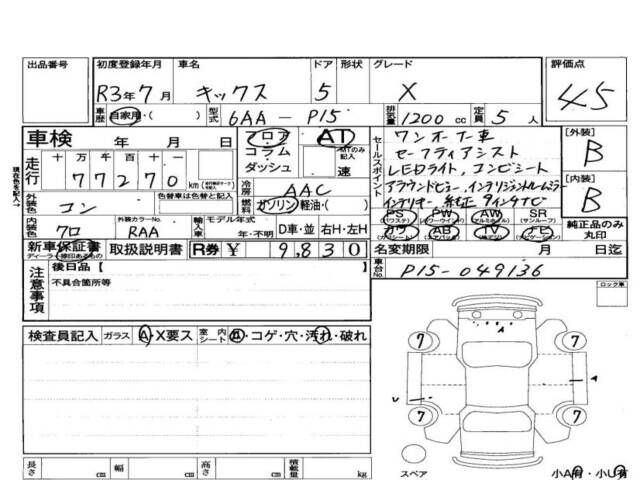 出品番号 初度登録年月 車名 ドア 形状 グレード 評価点
R3年7月 キックス 5 X 4.5
車歴 自家用・( ) 型式 6AA-P15 排気量 1200cc 定員 5人
車検 年 月 日 フロア コラム ダッシュ AT MTのみ記入 速
走行 十万 万 千 百 十 77270km
セールスポイント
ワンオーナー車
セーフティアシスト
LEDライト、コンビシート
アラウンドビュー、インテリジェントルームミラー
インテリキー 純正9インチナビ
[外装] B
[内装] B
冷房 AAC
外装色 コン 色替車は色替と記入 燃料 ガソリン・軽油・( )
内装色 クロ 外装カラーNo. RAA 輸入車 モデル年式 年・不明 D車・並 右H・左H
PS パワステ PW パワーウインドウ AW アルミホイル SR サンルーフ
カワ AB TV ナビ
純正品のみ丸印
新車保証書 ディーラー様印あるもの 取扱説明書 R券 ¥ 9,830 名変期限 月 日迄
注意事項 後日品【 車台No. P15-049136
不具合箇所等
ロック車
検査員記入 ガラス A・X要ス 室内シート 凹・コゲ・穴・汚れ・破れ
A
7 7
A
V
7 7
スペア
長さ cm 幅 cm 高さ cm 積載量 kg 小A有・小U有